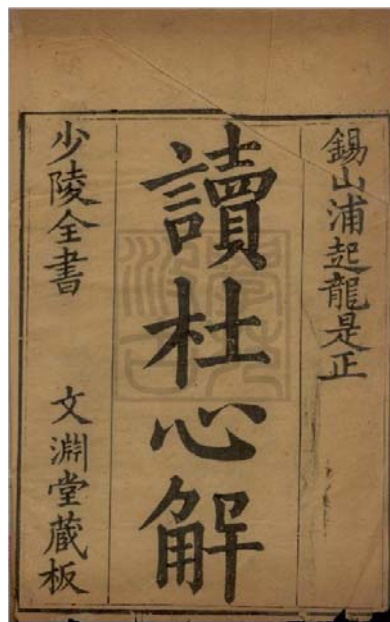 錫山浦起龍是正
讀杜心解
少陵全書 文淵堂藏板